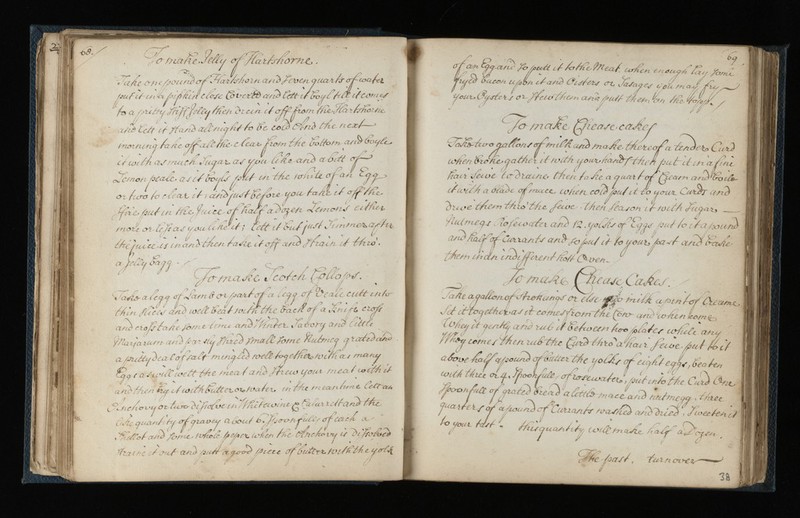 68
To make Jelly of Hartshorne.
Take one pound of Hartshorn and Seven quarts of water
put it in a pipkin close Covered and lett it boyl till it comes
to a pritty stiff Jelly then drein it off from the Hartshorne
and lett it stand all night to be cold And the next
morning take off all the clear from the bottom and boyle
it with as much Sugar as you like and a bitt of
Lemon peale as it boyls put in the white of an Egg
or two to clear it: and just before you take it off the
ffire put in the Juice of half a dozen Lemons either
more or less as you like it; Lett it but just Simmer after
the juice is in and then take it off and strain it thro:
a Jelly bagg.
To make Scotch Collops.
Take a legg of Lamb or part of a legg of Veale cutt into
thin slices and well beat with the back of a Knife cross
and cross take some time and Winter Savory and little
Marjaram and parsly shred small Some Nutmeg grated and
a pritty deal of salt mingled well together with as many
Eggs as will wett the meat and strew your meat with it
and then fry it with butter or water in the meantime lett an
Anchovy or two disolve in Whitewine & Clarrett and the
like quantity of gravy about 6 Spoonfulls of each a
Shallot and some whole peper when the Anchovy is Dissolved
straine it out and putt a good piece of butter with the yolk
69
of an Egg and so putt it to the Meat when enough lay some
fryed bacon upon it and Oisters or Sasages you may fry
your Oysters or stew them and putt them on the topp.
To make Cheasecakes
Take two gallons of milk and make thereof a tender Curd
when broke gather it with your hands then put it in a fine
hair Seive to draine then take a quart of Cream and boile
it with a blade of mace when cold put it to your Curds and
drive them thro' the seive. then season it with Sugar
Nutmegs Rosewater and 12. yolks of Eggs put to it a pound
and half of Currants and so put it to your past and bake
them in an indifferent hott Oven.
To make Chease Cakes.
Take a gallon of strokings or else milk a pint of Creame
Set it together as it comes from the Cow and when come
Whey it gently and rub it between two plates while any
Whey comes then rub the Curd thro' a hair seive put to it
above half a pound of butter the yolks of eight eggs, beaten
with three or 4. spoonfulls of rosewater, put into the Curd One
spoonfull of grated bread a little mace and nutmegg. three
quarters of a pound of Currants washed and dried. Sweeten it
to your tast. this quantity will make half a Dozen.
The past. turnover
38